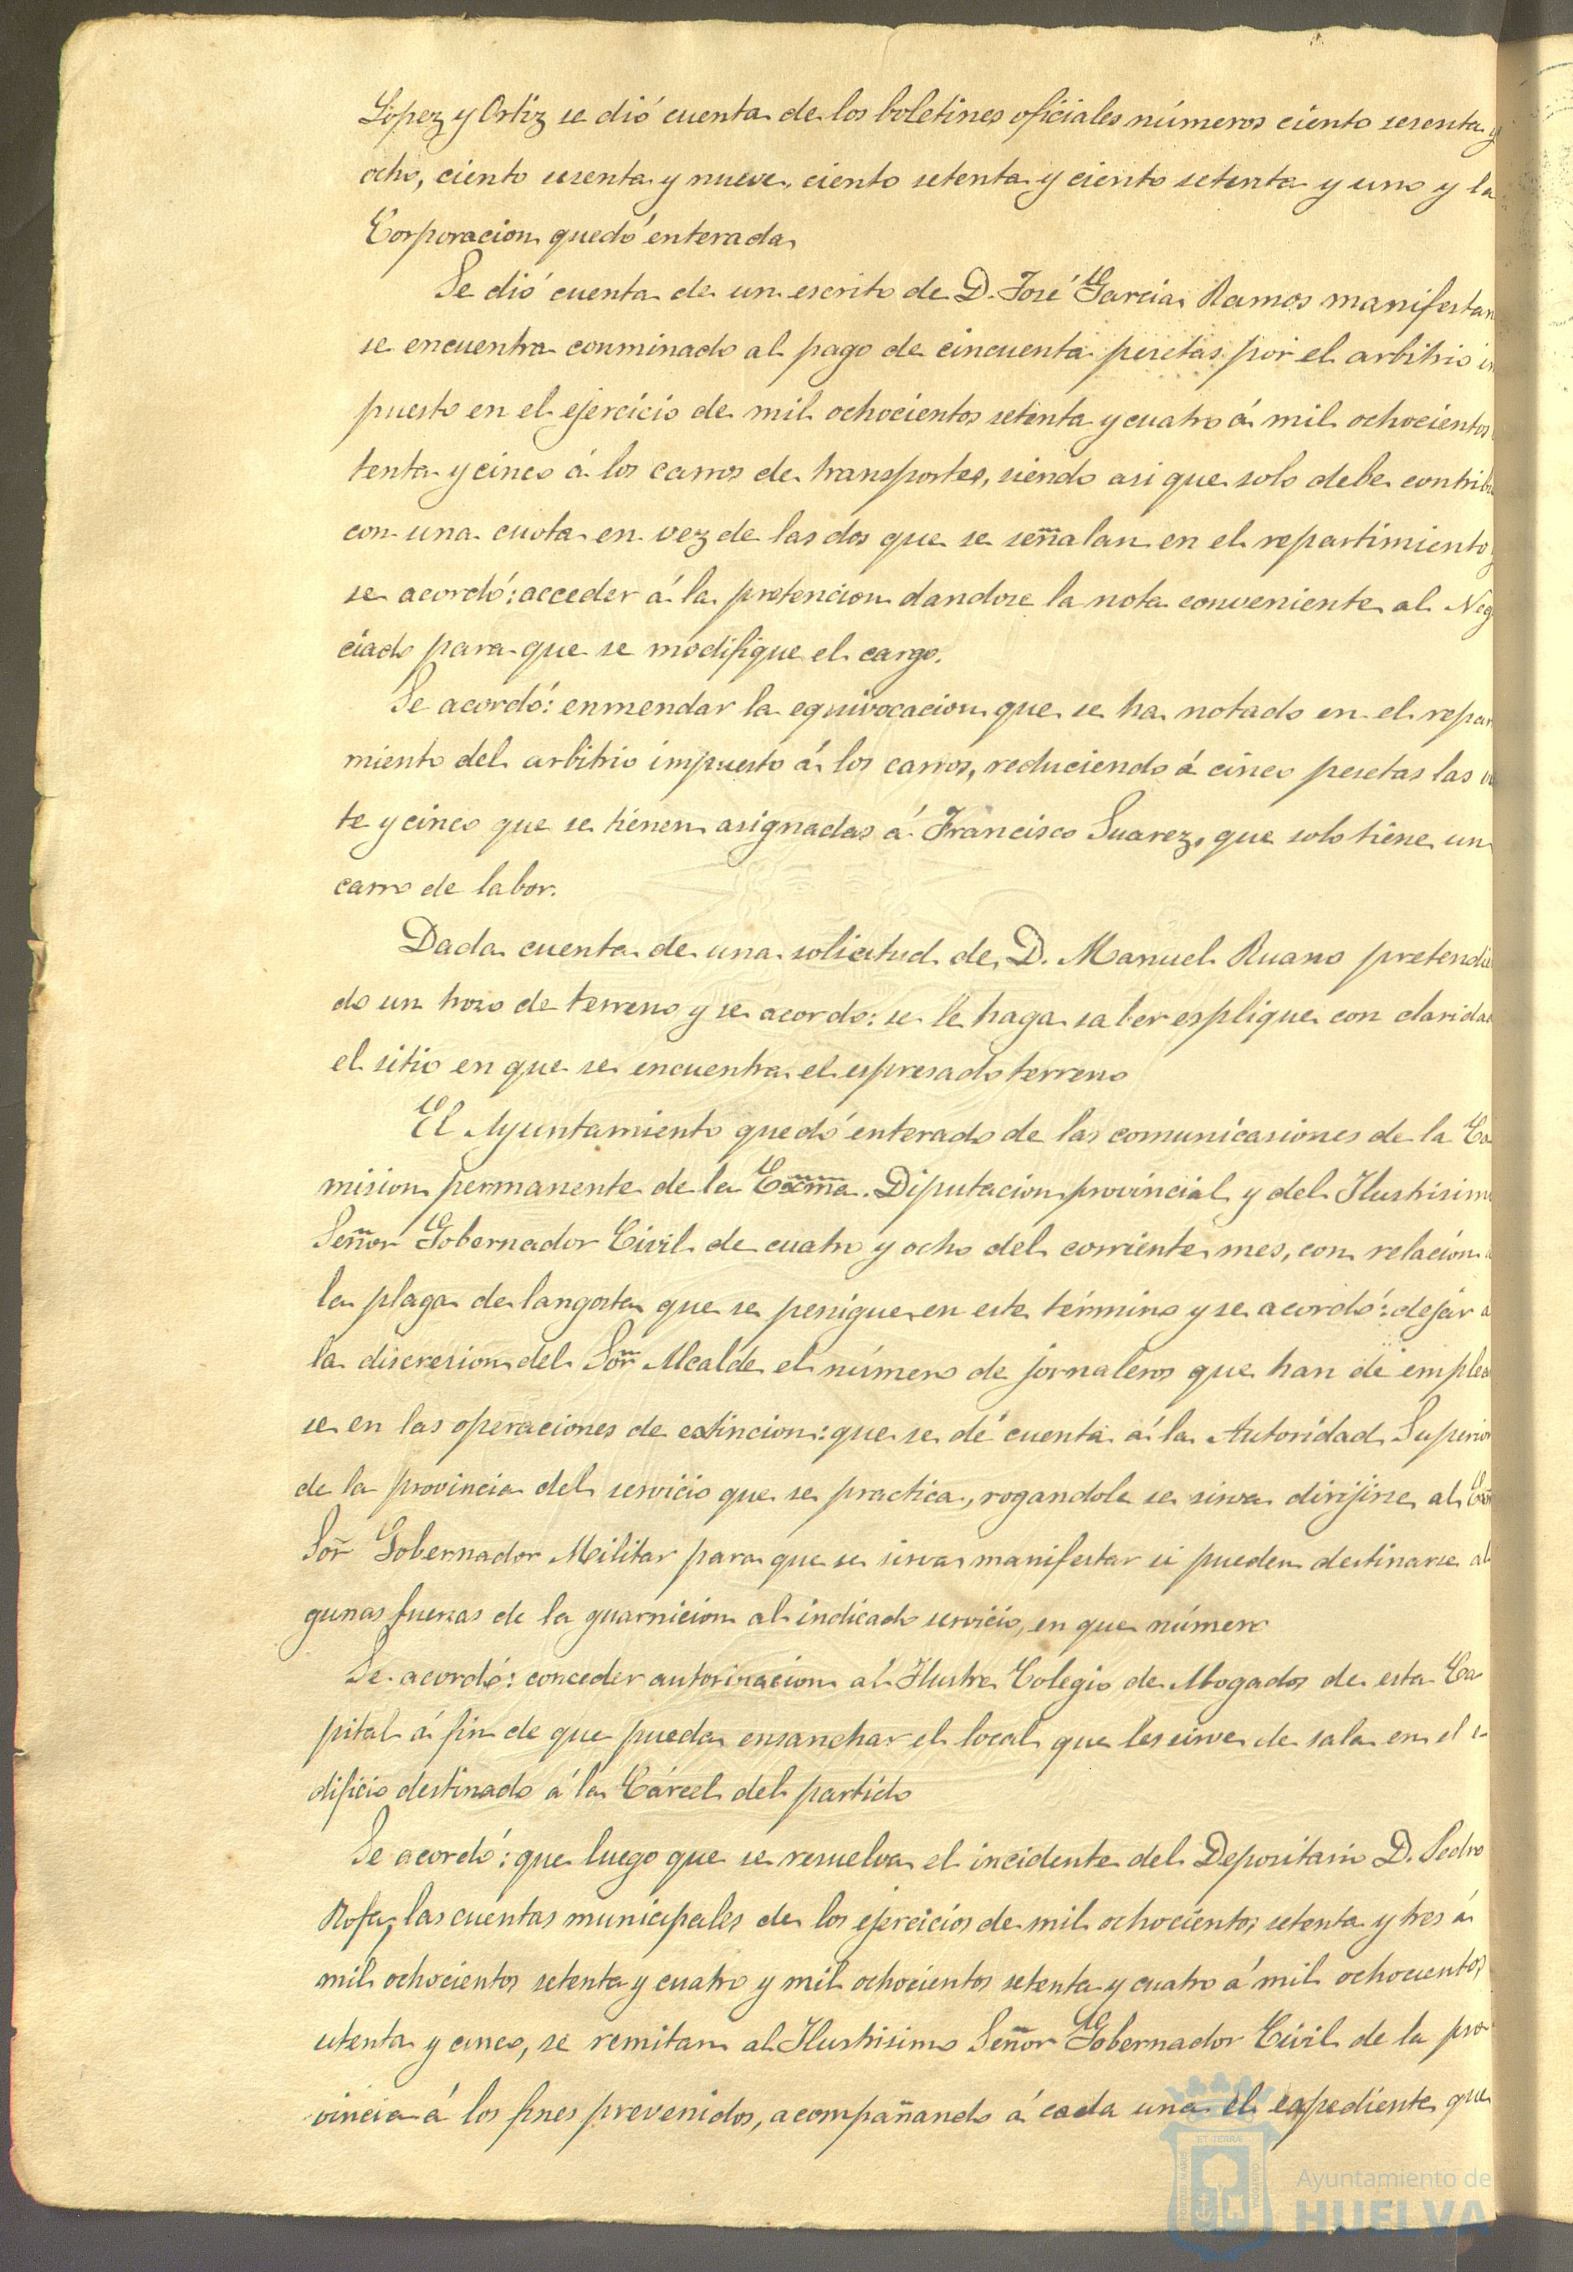 Lopez y Ortiz se dió cuenta de los boletines oficiales números ciento sesenta y
ocho, ciento sesenta y nueve, ciento setenta y ciento setenta y uno y la
Corporacion quedó enterada
Se dió cuenta de un escrito de D. José Garcia Ramos manifestan
se encuentra conminado al pago de cincuenta pesetas por el arbitrio im
puesto en el ejercicio de mil ochocientos setenta y cuatro á mil ochocientos
tenta y cinco á los carros de transportes, siendo asi que solo debe contribu
con una cuota en vez de las dos que se señalan en el repartimiento y
se acordó: acceder á la pretencion dandose la nota conveniente al Neg
ciado para que se modifique el cargo.
Se acordó: enmendar la equivocacion que se ha notado en el repar
miento del arbitrio impuesto á los carros, reduciendo á cinco pesetas las ve
te y cinco que se tienen asignadas á Francisco Suarez, que solo tiene un
carro de labor.
Dada cuenta de una solicitud de D. Manuel Ruano pretendie
do un trozo de terreno y se acordo: se le haga saber esplique con claridad
el sitio en que se encuentra el espresado terreno
El Ayuntamiento quedó enterado de las comunicasiones de la Co
mision permanente de la Excma. Diputacion provincial y del Ilustrisimo
Señor Gobernador Civil de cuatro y ocho del corriente mes, con relación á
la plaga de langosta que se persigue en este término y se acordó: dejar á
la discresion del Sor Alcalde el número de jornaleros que han de emplear
se en las operaciones de extincion: que se dé cuenta á la Autoridad Superior
de la provincia del servicio que se practica, rogandole se sirva dirijirse al Exmo
Sor Gobernador Militar para que se sirva manifestar si pueden destinarse al
gunas fuerzas de la guarnicion al indicado servicio, en que número
Se acordó: conceder autorizacion al Ilustre Colegio de Abogados de esta Ca
pital á fin de que pueda ensanchar el local que les sirve de sala en el e
dificio destinado á la Cárcel del partido
Se acordó: que luego que se resuelva el incidente del Depositario D. Pedro
Rofa, las cuentas municipales de los ejercicios de mil ochocientos setenta y tres á
mil ochocientos setenta y cuatro y mil ochocientos setenta y cuatro á mil ochocientos
setenta y cinco, se remitan al Ilustrisimo Señor Gobernador Civil de la pro
vincia á los fines prevenidos, acompañando á cada una el expediente que
Ayuntamiento de
HUELVA